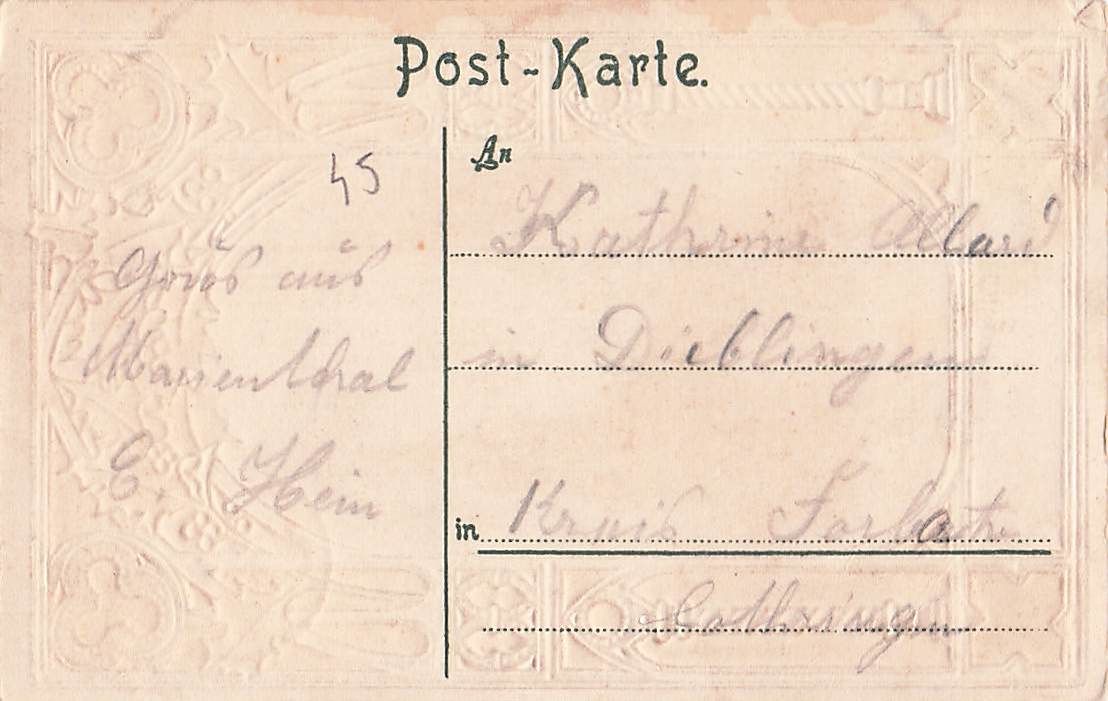 Post-Karte.
45
Grüs aus
Marienthal
E. Hein
An
Kathrine Allard
in Dieblingen
in Kreis Forbach
Lothringen